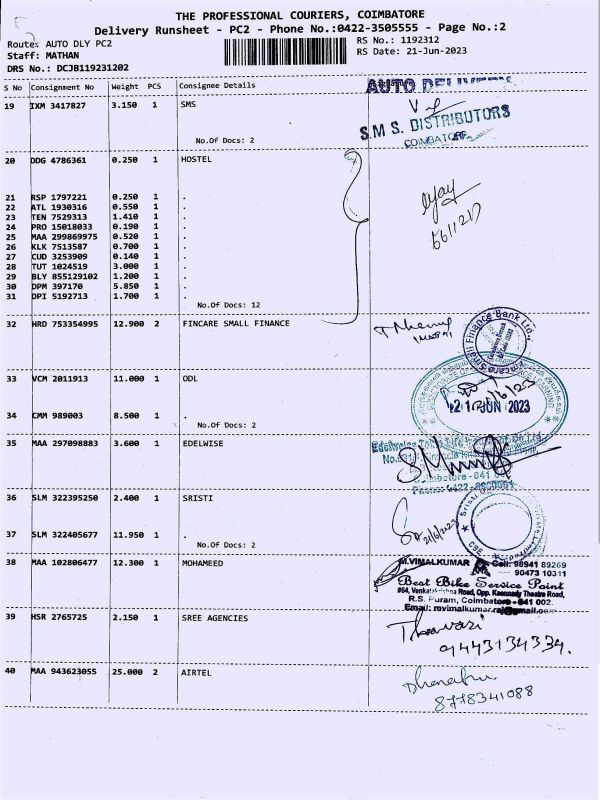 THE PROFESSIONAL COURIERS, COIMBATORE
Delivery Runsheet - PC2 - Phone No.:0422-3505555 - Page No.:2
Route: AUTO DLY PC2 RS No.: 1192312
Staff: MATHAN RS Date: 21-Jun-2023
DRS No.: DCJB119231202
S No Consignment No Weight PCS Consignee Details
AUTO DELIVERY
19 IXM 3417827 3.150 1 SMS
S.M.S. DISTRIBUTORS
COIMBATORE
No.Of Docs: 2
20 DDG 4786361 0.250 1 HOSTEL
21 RSP 1797221 0.250 1 .
22 ATL 1930316 0.550 1 .
23 TEN 7529313 1.410 1 .
24 PRO 15018033 0.190 1 .
25 MAA 299869975 0.520 1 .
26 KLK 7513587 0.700 1 .
27 CUD 3253909 0.140 1 .
28 TUT 1024519 3.000 1 .
29 BLY 855129102 1.200 1 .
30 DPM 397170 5.850 1 .
31 DPI 5192713 1.700 1 .
No.Of Docs: 12
32 HRD 753354995 12.900 2 FINCARE SMALL FINANCE
Fincare Small Finance Bank Ltd.,
33 VCM 2011913 11.000 1 ODL
21 JUN 2023
34 CMM 989003 8.500 1 .
No.Of Docs: 2
35 MAA 297098883 3.600 1 EDELWISE
36 SLM 322395250 2.400 1 SRISTI
21/6/23
37 SLM 322405677 11.950 1 .
No.Of Docs: 2
38 MAA 102806477 12.300 1 MOHAMEED
M.VIMALKUMAR Cell: 98941 89269
90473 10311
Best Bike Service Point
#64, Venkatakrishna Road, Opp. Kaennedy Theatre Road,
R.S. Puram, Coimbatore-641 002.
Email: mvimalkumar.raj@gmail.com
39 HSR 2765725 2.150 1 SREE AGENCIES
9443134334.
40 MAA 943623055 25.000 2 AIRTEL
8778341088